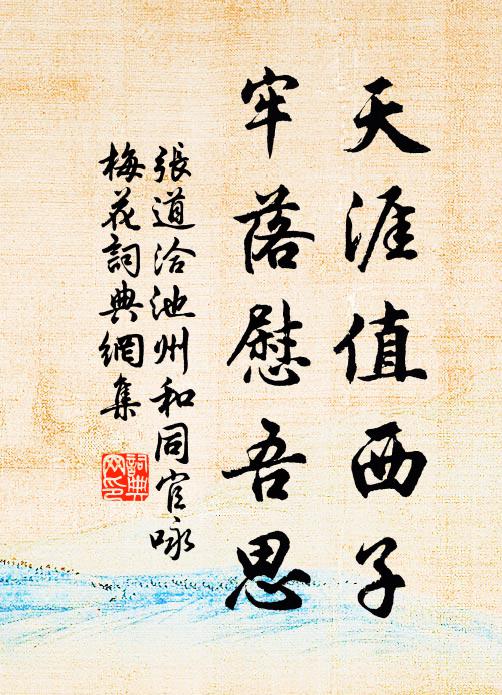 天涯值西子
牢落慰吾思
張道洽池州和同官咏
梅花詞典網集
詞典
网印